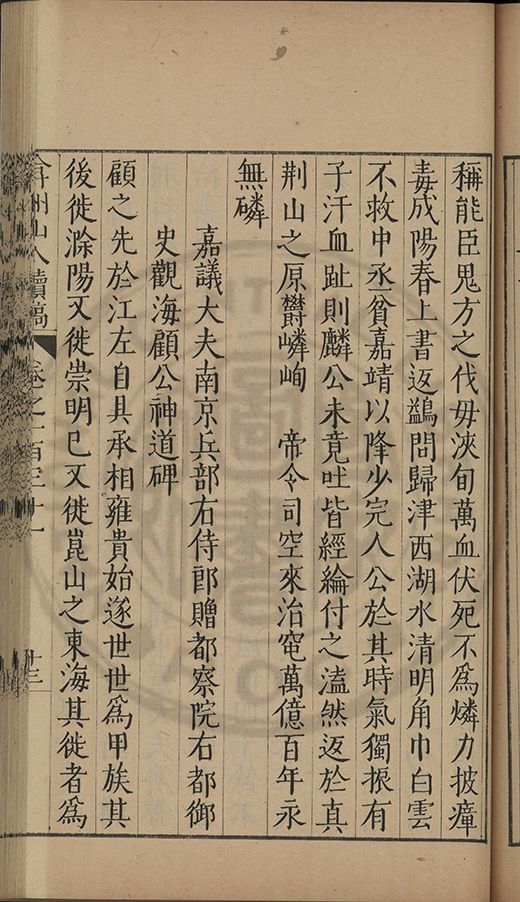 稱能臣鬼方之伐毋浹旬萬血伏死不爲燐力披瘴
毒成陽春上書返鷁問歸津西湖水清明角巾白雲
不救中丞貧嘉靖以降少完人公於其時氣獨振有
子汗血趾則麟公未竟吐皆經綸付之溘然返於真
荆山之原欝嶙峋　帝令司空來治窀萬億百年永
無磷
嘉議大夫南京兵部右侍郎贈都察院右都御
史觀海顧公神道碑
顧之先於江左自具承相雍貴始遂世世爲甲族其
後徙滁陽又徙崇明已又徙崑山之東海其徙者爲
弇州山人續稿
卷之一百三十一
十三